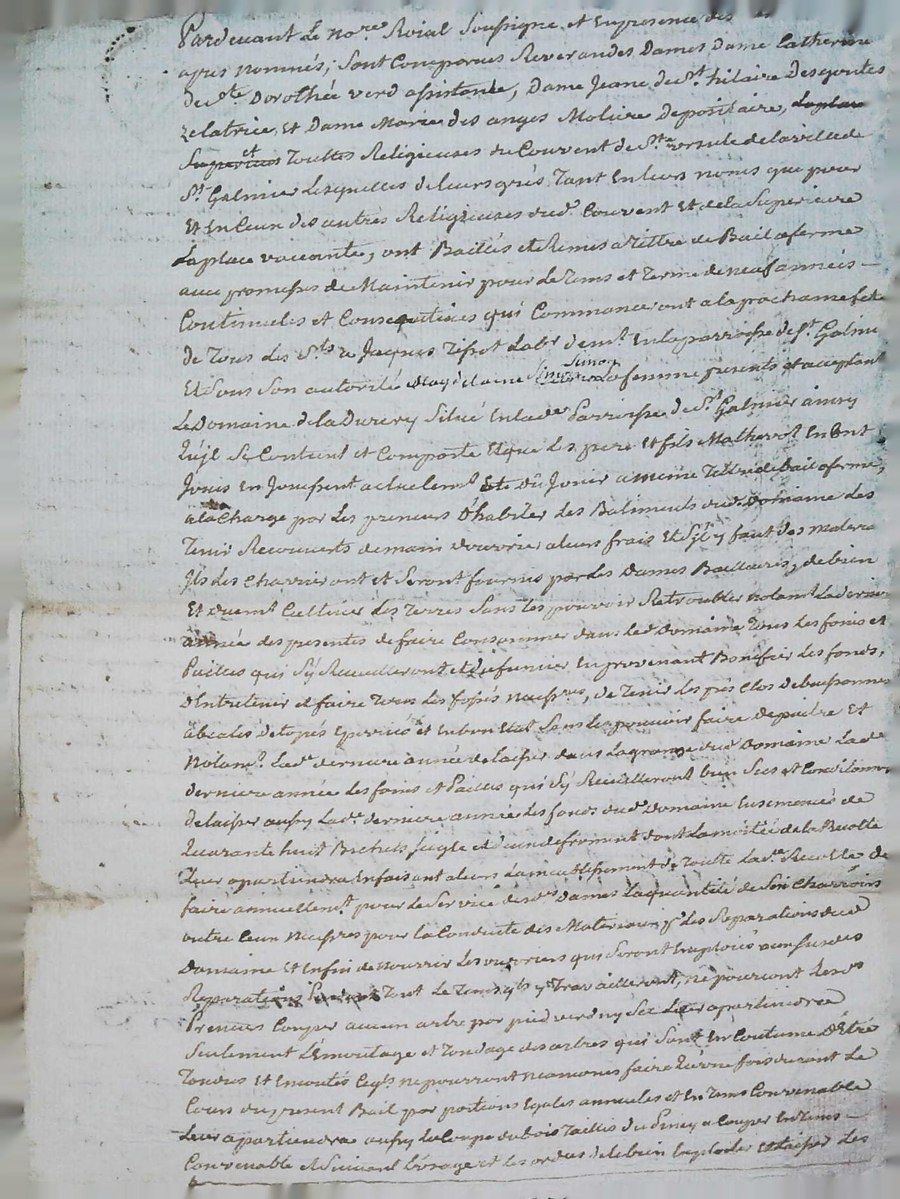 Pardevant Le no.re Roial Soussigné et En presence des
apres nommés, sont Comparues Reverandes Dames Dame Catherine
de s.te Dorothée verd assistante, Dame Jeane de S.t hilaire Desgoutes
Zelatrice, Et Dame Marie des anges Moliere Depositaire,
et Touttes Religieuses du Couvent de S.te ursule de la ville de
S.t Galmier Lesquelles de leurs grés Tant En leurs noms que pour
Et En Ceux des autres Religieuses dud. Couvent Et de la Superieure
La place vaccante, ont Baillés et Remis a tittre de Bail a ferme
avec promesses de Maintenir pour Le Tems et Terme de neuf années
Continuelles et Consequtives qui Commanceront a la prochaine fete
de Tous Les S.ts a Jacques Tissot Lab.r dem.t En la parroisse de S.t Galmier
Et sous son autorité a Simon sa femme presents et acceptant
Le Domaine de la Situé En lad.e Parroisse de S.t Galmier ainsy
Qu'il Se Contient et Comporte Et que Les pere Et fils En ont
Jouis En Jouissent actuelem.t Et du Jouir a meme Tittre de bail a ferme,
a la Charge par Les preneurs D'habiter Les Batiments dud. Domaine Les
Tenir Recouverts de main d'ouvrier a leurs frais Et S'il y faut des materiaux
Ils Les Charrieront et Seront fournis par Les Dames Bailleures, de bien
Et duem.t Cultiver Les Terres Sans Les pouvoir Retroubler notam.t La derniere
année des presentes de faire Consommer dans led. Domaine Tous Les foins et
Pailles qui s'y Recuilleront et du fumier En provenant Bonifier Les fonds,
d'Entretenir et faire Tous Les fossés necess.res, de Tenir Les prés Clos de buissonnés
et En bon Etat Sans Les pouvoir faire Depaitre Et
Notam.t Lad.e derniere année de laisser dans La grange dud. Domaine Lad.e
derniere année Les foins et Pailles qui s'y Recuilleront bien Secs et Conditionnés
de laisser aussy Lad.e derniere année Les fonds dud. Domaine Ensemencés de
Quarante huit Bichets seigle et d'un de froment dont La moitié de la Recolte
Leur apartiendra En faisant alors L'ameublissement de Toutte Lad.e Recolte de
faire annuellem.t pour Le Service desd.es Dames La quantité de Charrois
outre Ceux necess.res pour la Conduite des Materiaux p.r Les Reparations dud.
Domaine Et Enfin de nourrir Les ouvriers qui Seront Emploiés aux susdes
Reparations Tout Le Tems qu'ils y Travailleront, ne pourront Lesd.s
Preneurs Couper aucun arbre par pied verd ny Sec Leur apartiendra
Seulement L'Emontage et Tondage des arbres qui Sont En Coutume D'Etre
Tondus Et Emontés Ce qu'ils ne pourront neamoins faire Qu'une fois durant Le
Cours du present Bail par portions Egales annuelles et En Tems Convenable
Leur apartiendra aussy La Coupe du bois Taillis du a Couper En Tems
Convenable et Suivant L'usage et Les ordres de le bien Exploiter Et Laisser Les